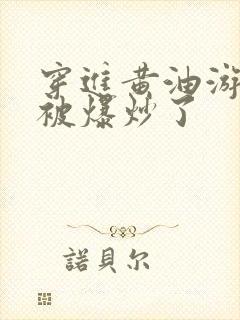 穿進黄油游
被爆炒了
諾貝尔